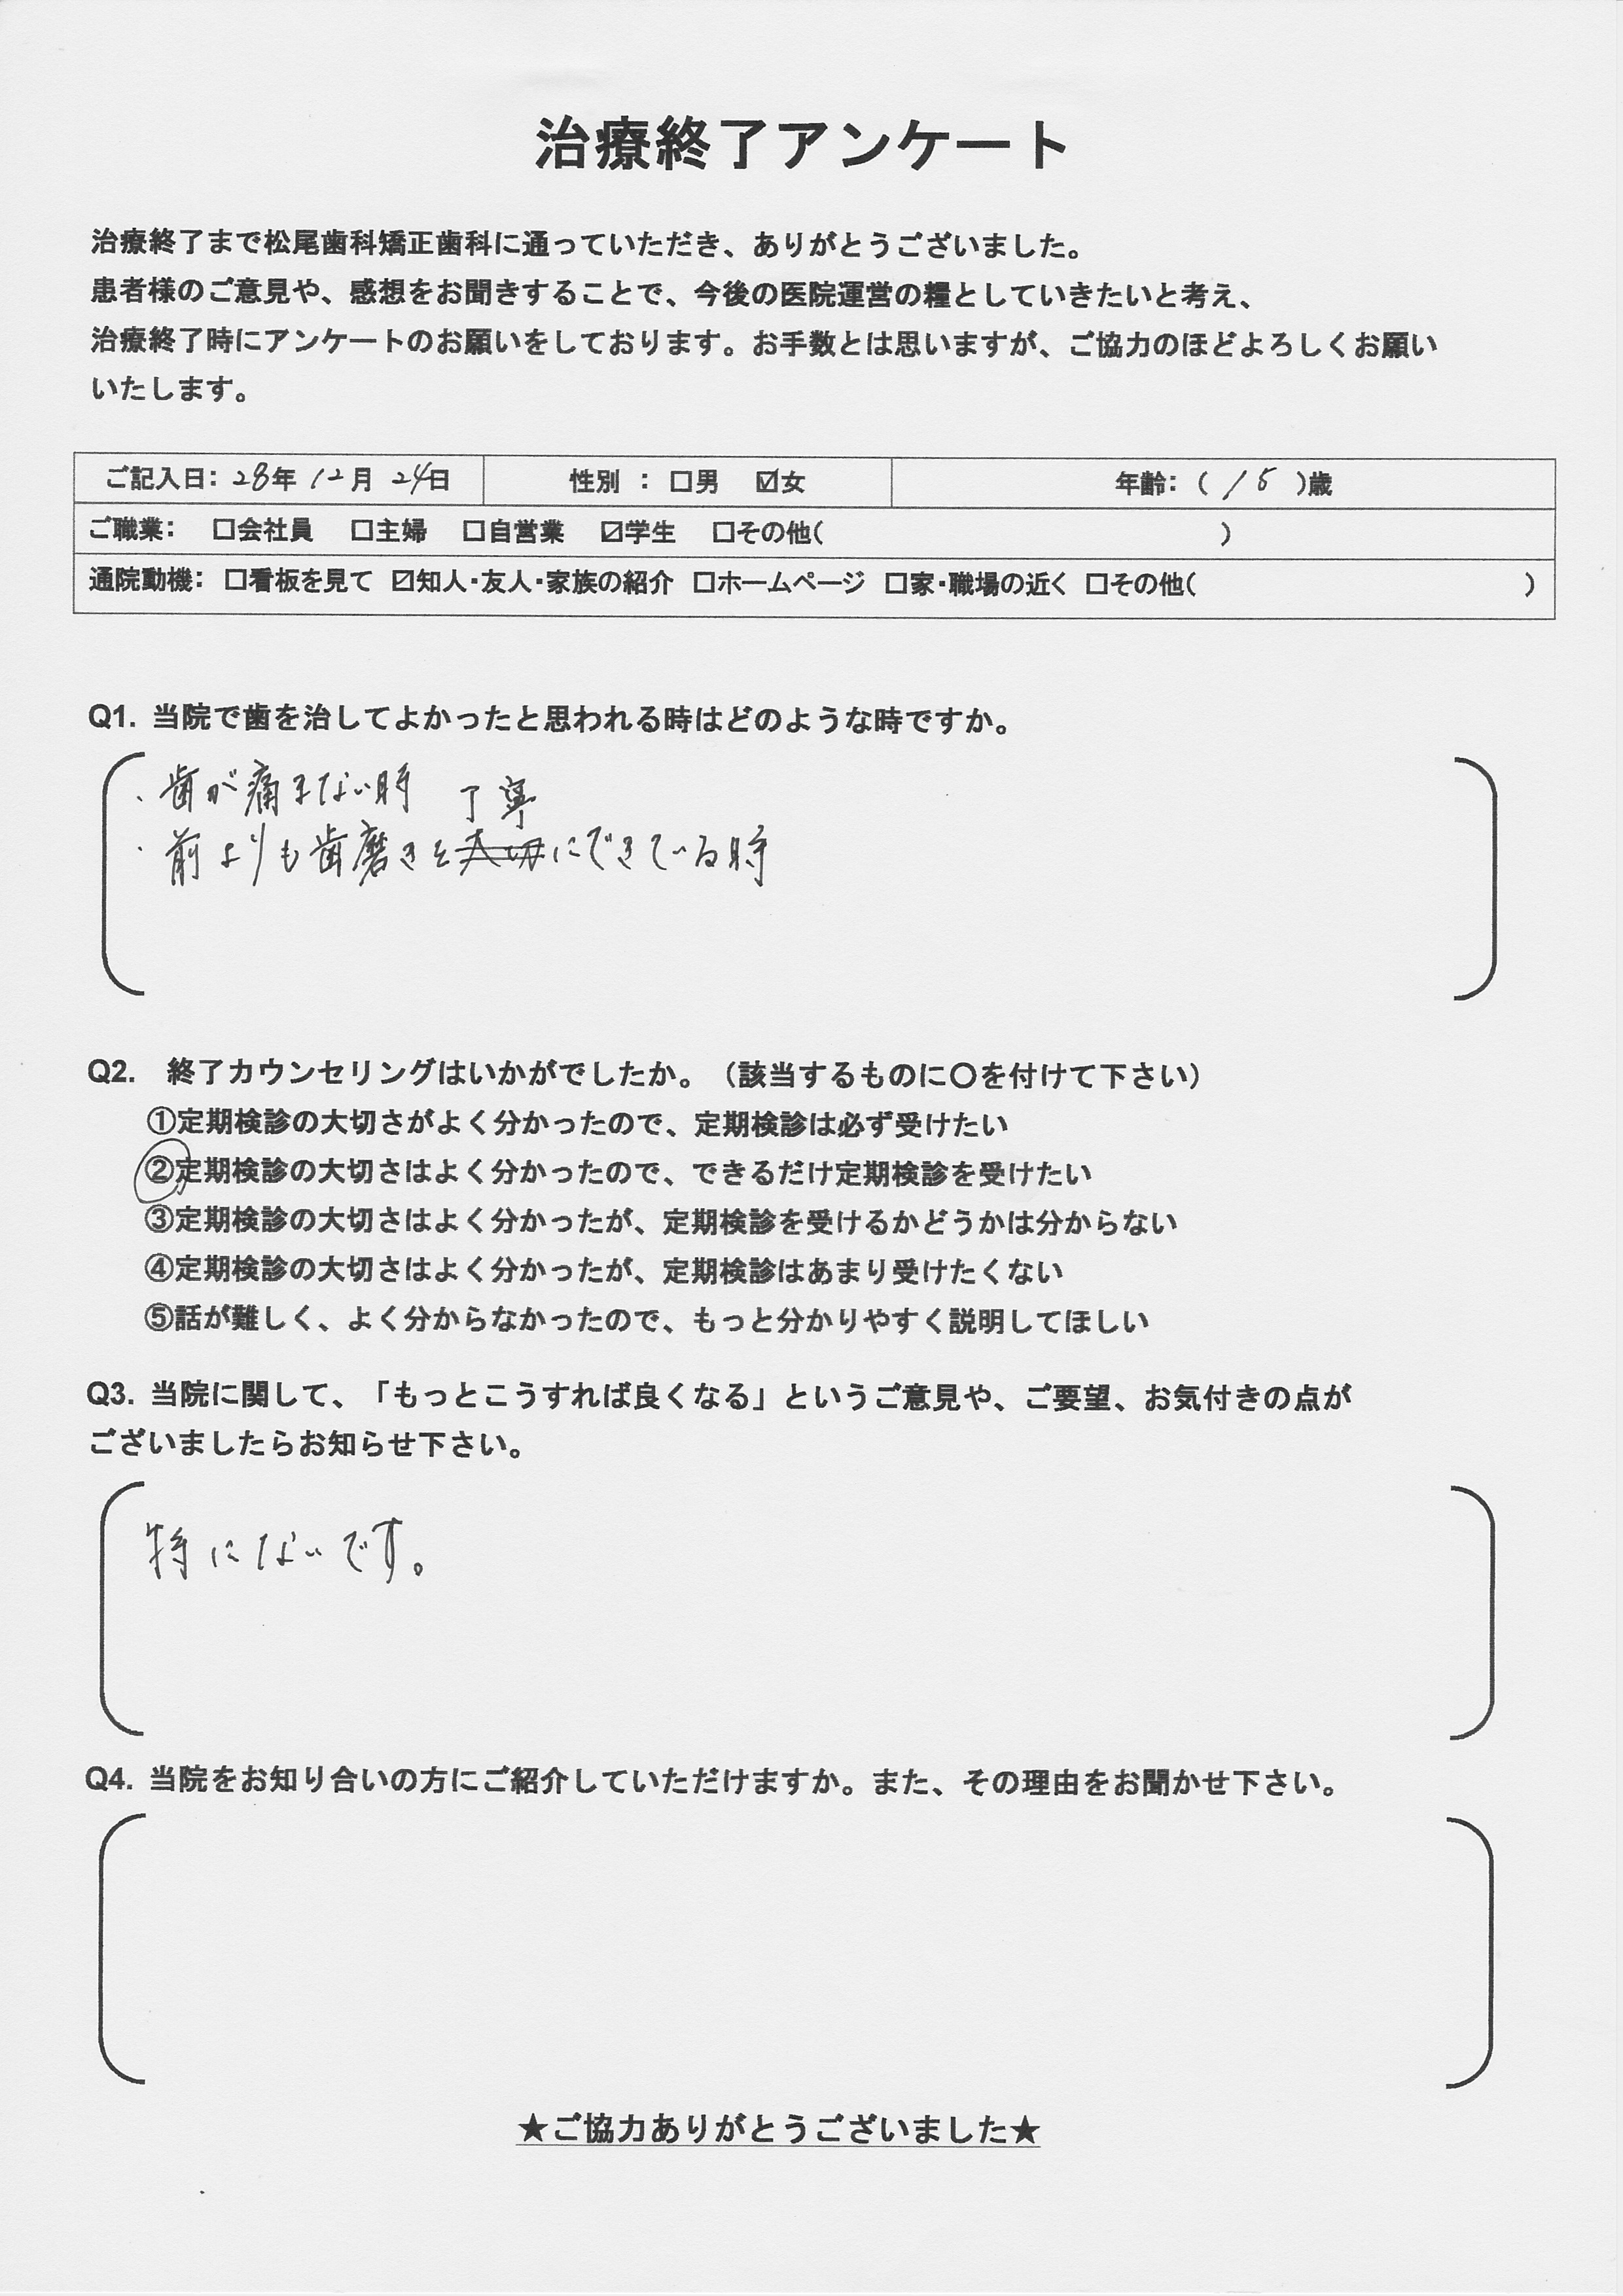 治療終了アンケート
治療終了まで松尾歯科矯正歯科に通っていただき、ありがとうございました。
患者様のご意見や、感想をお聞きすることで、今後の医院運営の糧としていきたいと考え、
治療終了時にアンケートのお願いをしております。お手数とは思いますが、ご協力のほどよろしくお願い
いたします。
ご記入日：28年 12月 24日 性別 ：□男 ☑女 年齢：（ 15 ）歳
ご職業： □会社員 □主婦 □自営業 ☑学生 □その他（ ）
通院動機：□看板を見て ☑知人・友人・家族の紹介 □ホームページ □家・職場の近く □その他（ ）
Q1. 当院で歯を治してよかったと思われる時はどのような時ですか。
・歯が痛まない時
丁寧
・前よりも歯磨きを大切にできている時
Q2. 終了カウンセリングはいかがでしたか。（該当するものに〇を付けて下さい）
①定期検診の大切さがよく分かったので、定期検診は必ず受けたい
②定期検診の大切さはよく分かったので、できるだけ定期検診を受けたい
③定期検診の大切さはよく分かったが、定期検診を受けるかどうかは分からない
④定期検診の大切さはよく分かったが、定期検診はあまり受けたくない
⑤話が難しく、よく分からなかったので、もっと分かりやすく説明してほしい
Q3. 当院に関して、「もっとこうすれば良くなる」というご意見や、ご要望、お気付きの点が
ございましたらお知らせ下さい。
特にないです。
Q4. 当院をお知り合いの方にご紹介していただけますか。また、その理由をお聞かせ下さい。
★ご協力ありがとうございました★